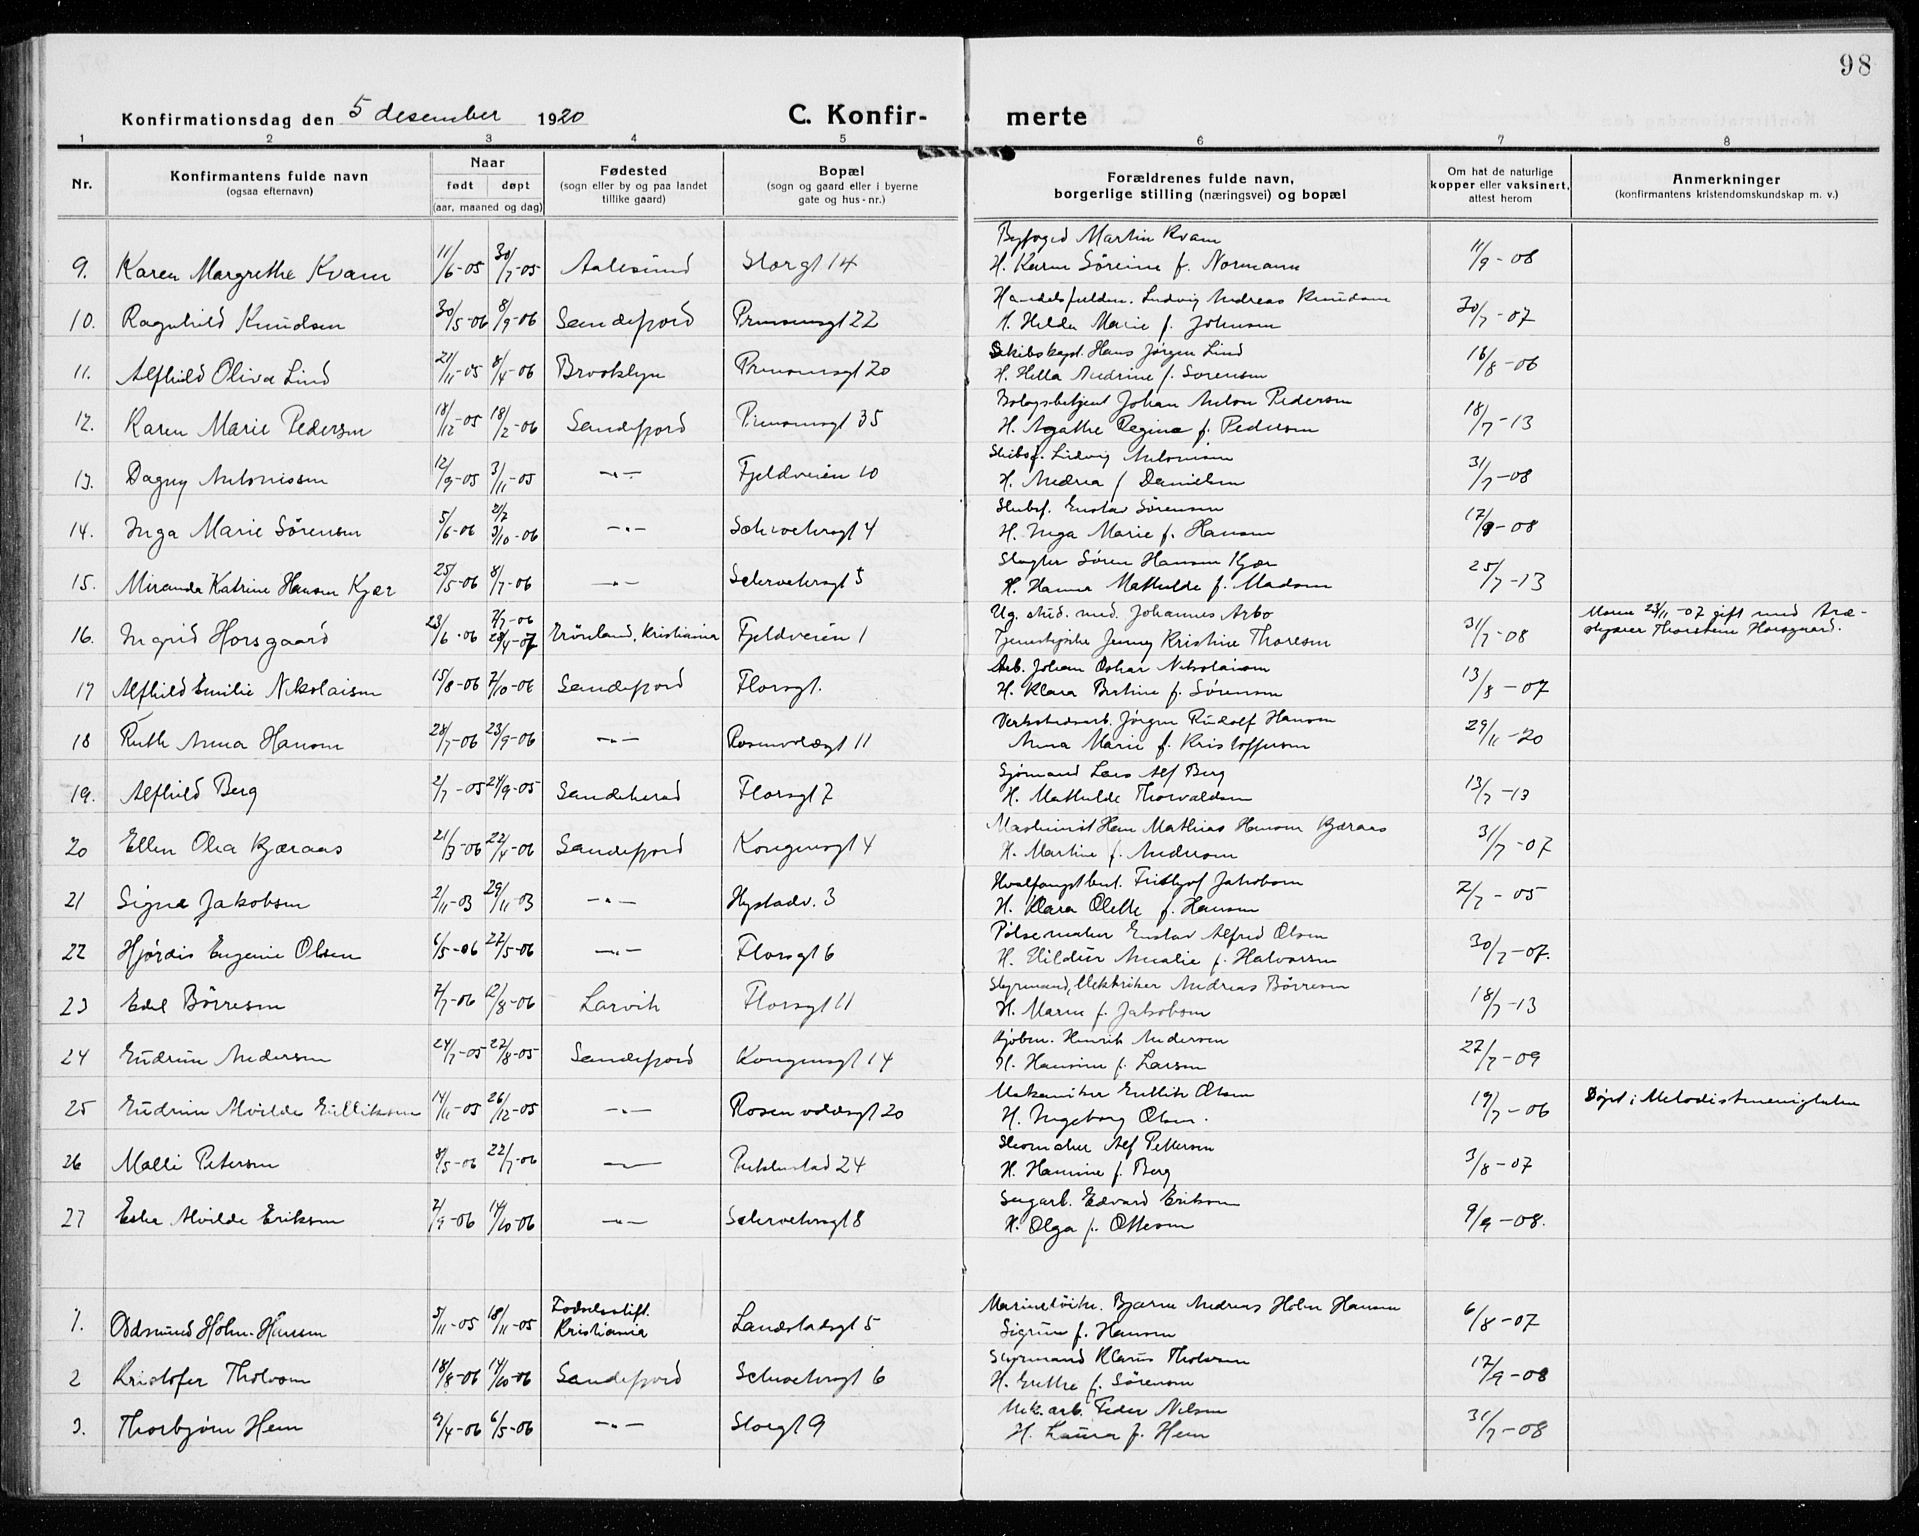 98
Konfirmationsdag den 5 desember 1920 C. Konfir- merte
1 2 3 4 5 6 7 8
Nr. Konfirmantens fulde navn (ogsaa efternavn) Naar født døpt (aar, maaned og dag) Fødested (sogn eller by og paa landet tillike gaard) Bopæl (sogn og gaard eller i byerne gate og hus-nr.) Forældrenes fulde navn, borgerlige stilling (næringsvei) og bopæl Om hat de naturlige kopper eller vaksinert, attest herom Anmerkninger (konfirmantens kristendomskundskap m. v.)
Byfoged Martin Kvam
9. Karen Margrethe Kvam 11/6-05 30/7-05 Aalesund Storgt 14 H. Karen Søreine f. Normann 11/9-08
Ludvig Andreas Knudsen
10. Ragnhild Knudsen 30/5-06 8/9-06 Sandefjord Prinsensgt 22 H. Hilda Marie f. Johnsen 30/7-07
Skibskapt. Hans Jørgen Lind
11. Alfhild Oliva Lind 21/11-05 8/4-06 Brooklyn Prinsensgt 20 H. Hella Andrine f. Sorensen 16/8-06
Johan Anton Pedersen
12. Karen Marie Pedersen 18/12-05 18/2-06 Sandefjord Prinsensgt 35 H. Agathe Regine f. Pedersen 18/7-13
Skibsf. Ludvig Antonisen
13. Dagny Antonissen 12/9-05 3/11-05 -"- Fjeldveien 10 H. Andrea f Danielsen 31/7-08
Skibsf. Gustav Sørensen
14. Inga Marie Sørensen 5/6-06 2/7 3/10-06 -"- Schivetersgt 4 H. Inga Marie f. Hansen 17/9-08
Slagter Søren Hansen Kjær
15. Miranda Katrine Hansen Kjær 25/5-06 8/7-06 -"- Scherveturgt 5 H. Hanna Mathilde f. Madsen 25/7-13
Ug. stud. med. Johannes Arbo
16. Ingrid Horsgaard 23/6-06 7/7-06 28/4-07 Grønland, Kristiania Fjeldveien 1 Tjenestepike Jenny Kristine Thoresen 31/7-08 Moren 23/11-07 gift med Træ-
skjærer Thorstein Horsgaard.
Arb. Johan Oskar Nikolaisen
17 Alfhild Emilie Nikolaisen 15/8-06 7/10-06 Sandefjord Florsgt. H. Klara Bertine f. Sørensen 13/8-07
Verkstedsarb. Jørgen Rudolf Hansen
18 Ruth Anna Hansen 28/7-06 23/9-06 -"- Rosenvoldsgt 11 Anna Marie f. Kristoffersen 29/11-20
Sjømand Lars Alf Berg
19. Alfhild Berg 2/7-05 24/9-05 Sandeherad Florsgt 7 H. Mathilde Thorvaldsen 13/7-13
Maskinist Hem Mathias Hansen Kjæraas
20 Ellen Olea Kjæraas 21/3-06 22/4-06 Sandefjord Kongensgt 4 H. Martine f. Andersen 31/7-07
Hvalfangstbest. Fridtjof Jakobsen
21 Signe Jakobsen 2/11-03 29/11-03 -"- Hystadv. 3 H. Klara Olette f. Hansen 7/7-05
Pølsemaker Gustav Alfred Olsen
22 Hjørdis Eugenie Olsen 6/5-06 27/5-06 -"- Florsgt 6 H. Hildur Amalie f. Halvorsen 30/7-07.
Styrmand, Elektriker Andreas Børresen
23 Edel Børresen 7/7-06 12/8-06 Larvik Florsgt 11 H. Maren f. Jakobsen 18/7-13
Kjøbm. Henrik Andersen
24 Gudrun Andersen 24/7-05 27/8-05 Sandefjord Kongensgt 14 H. Hansine f. Larsen 27/7-09
Mekaniker Gullik Olsen
25 Gudrun Alvilde Gulliksen 14/11-05 26/12-05 -"- Rosenvoldsgt 20 H. Ingeborg Olsen. 19/7-06 Døpt i Metodistmenigheten
Skomaker Alf Pettersen
26 Malli Petersen 8/5-06 22/7-06 -"- Pukkestad 24 H. Hansine f. Berg 3/8-07
Edvard Eriksen
27 Esther Alvilde Eriksen 7/9-06 14/10-06 -"- Schrvetersgt 8 H. Olga f. Ottesen 9/9-08.
Fødselsstift. Bjarne Andreas Holm Hansen
1. Oddmund Holm-Hansen 3/11-05 18/11-05 Kristiania Landstadsgt 5 Sigrun f. Hansen 6/8-07
Styrmand Klaus Tholvsen
2 Kristofer Tholvsen 18/8-06 14/10-06 Sandefjord Schvetersgt 6 H. Grethe f. Sørensen 17/9-08
Mek.arb. Peder Nilsen
3. Thorbjørn Hem 9/4-06 6/5-06 -"- Storgt 9 H. Laura f. Hem 31/7-08